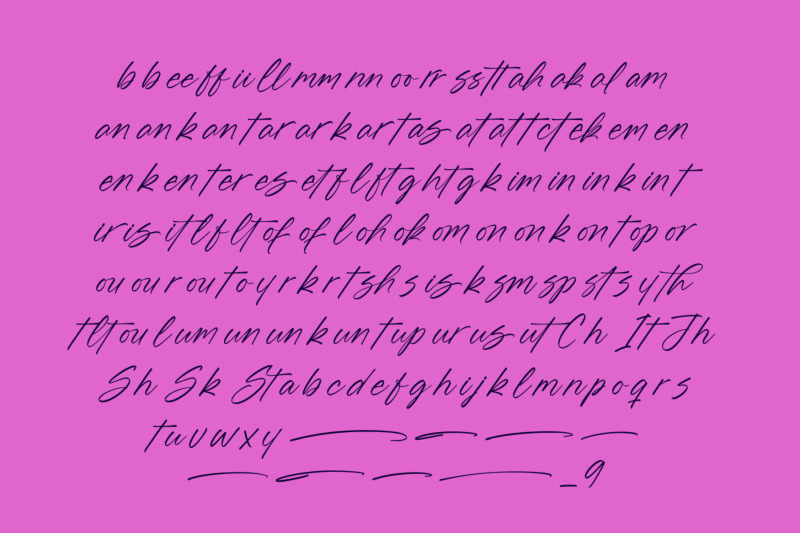 b b ee ff ii ll mm nn oo rr ss tt ah ak al am
an an k an t ar ar k ar t as at at t ct ek em en
en k en t er es et fl ft gh t g k im in in k in t
ir is it lf lt of of l oh ok om on on k on t op or
ou ou r ou t o y r k r t sh s is k sm sp st s y th
t lt ou l um un un k un t up ur us ut Ch It Th
Sh Sk St a b c d e f g h i j k l m n p o q r s
t u v w x y
_ 9